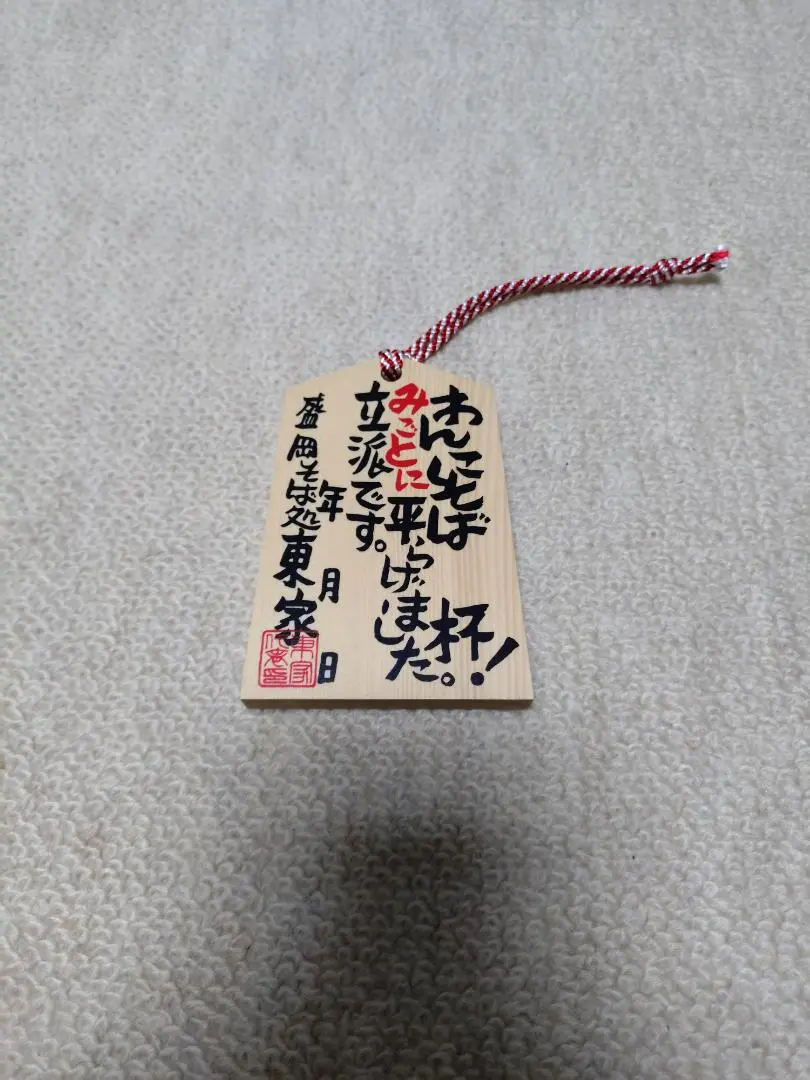 わんこそば 杯!
みごとに平らげました。
立派です。
年 月 日
盛岡そば処東家